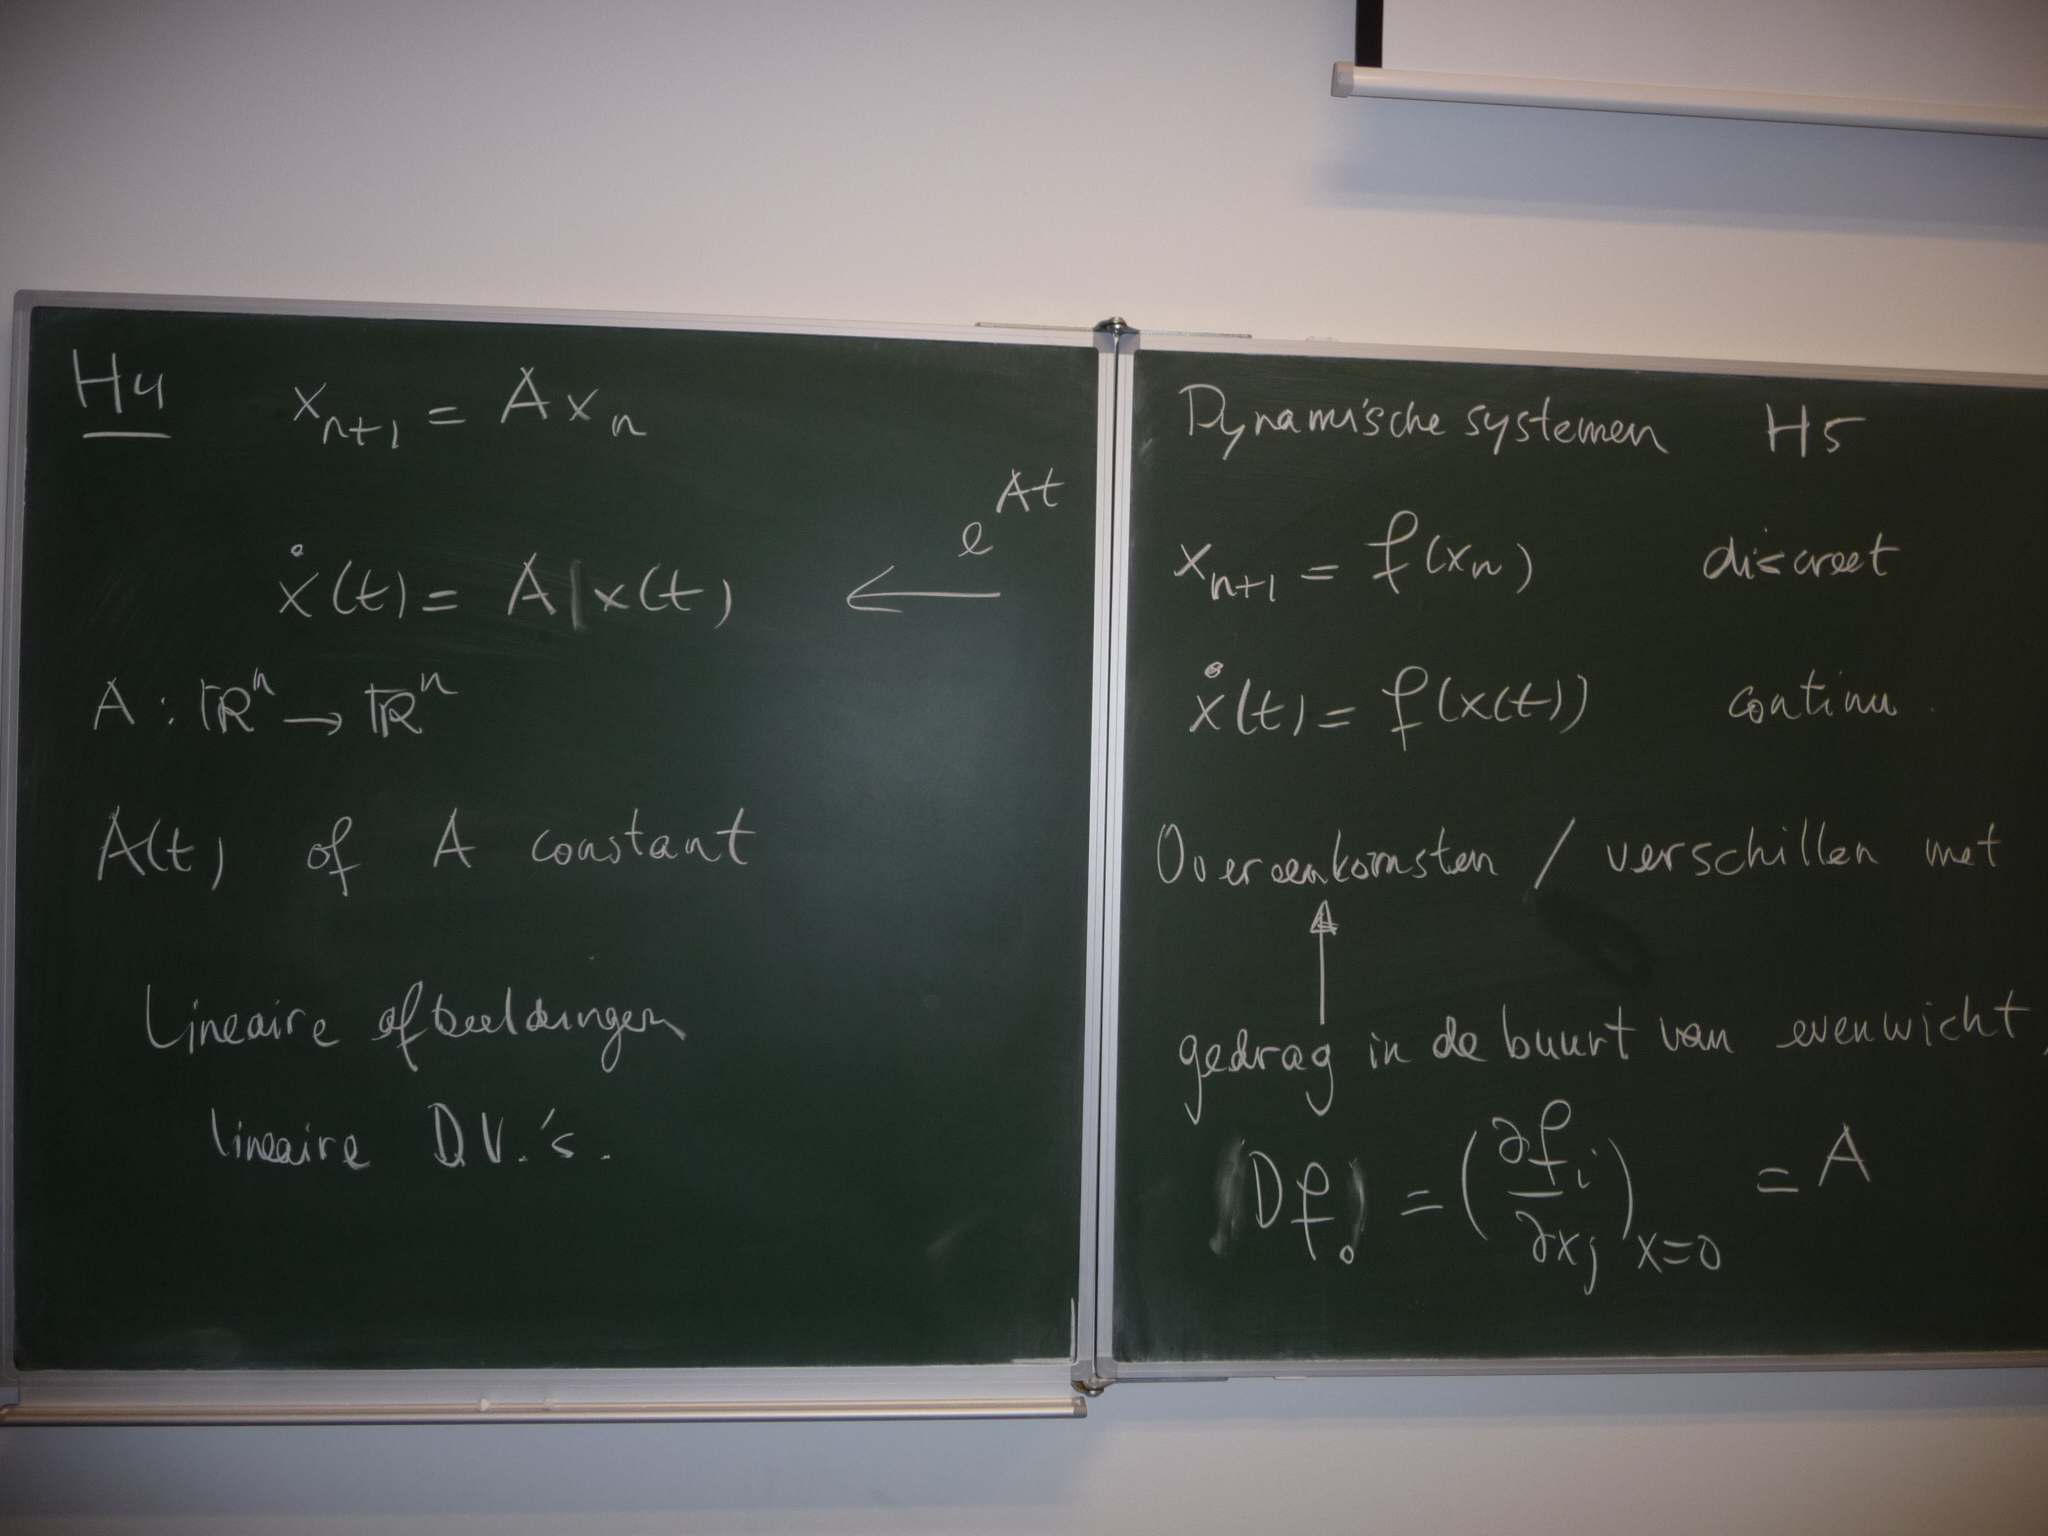 H4 xₙ₊₁ = A xₙ
ẋ(t) = A x(t) ← e^{At}
A : ℝⁿ → ℝⁿ
A(t) of A constant
Lineaire afbeeldingen
lineaire D.V.'s.
Dynamische systemen H5
xₙ₊₁ = f(xₙ) discreet
ẋ(t) = f(x(t)) continu.
Overeenkomsten / verschillen met
↑
gedrag in de buurt van evenwicht,
(Df₀) = (∂fᵢ/∂xⱼ)ₓ₌₀ = A